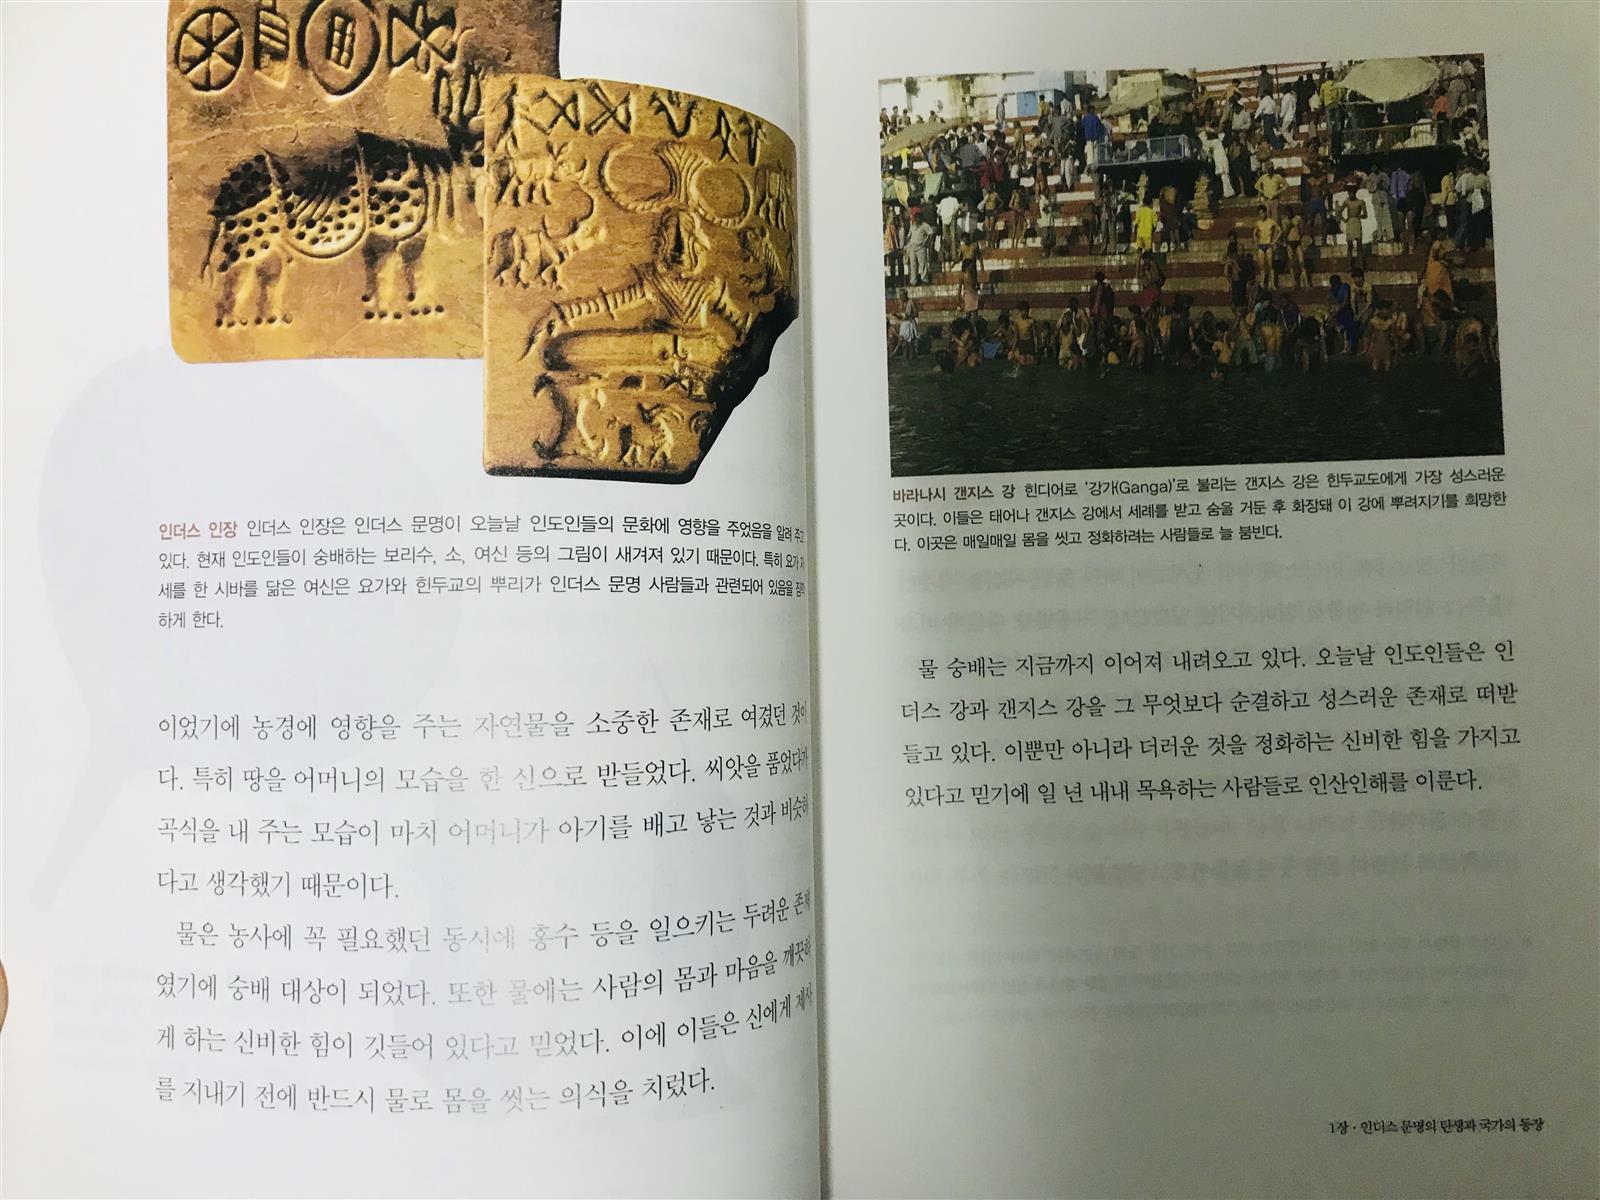 인더스 인장 인더스 인장은 인더스 문명이 오늘날 인도인들의 문화에 영향을 주었음을 알려 주고
있다. 현재 인도인들이 숭배하는 보리수, 소, 여신 등의 그림이 새겨져 있기 때문이다. 특히 요가 자
세를 한 시바를 닮은 여신은 요가와 힌두교의 뿌리가 인더스 문명 사람들과 관련되어 있음을 짐작
하게 한다.
이었기에 농경에 영향을 주는 자연물을 소중한 존재로 여겼던 것이
다. 특히 땅을 어머니의 모습을 한 신으로 받들었다. 씨앗을 품었다가
곡식을 내 주는 모습이 마치 어머니가 아기를 배고 낳는 것과 비슷하
다고 생각했기 때문이다.
물은 농사에 꼭 필요했던 동시에 홍수 등을 일으키는 두려운 존재
였기에 숭배 대상이 되었다. 또한 물에는 사람의 몸과 마음을 깨끗하
게 하는 신비한 힘이 깃들어 있다고 믿었다. 이에 이들은 신에게 제사
를 지내기 전에 반드시 물로 몸을 씻는 의식을 치렀다.
바라나시 갠지스 강 힌디어로 '강가(Ganga)'로 불리는 갠지스 강은 힌두교도에게 가장 성스러운
곳이다. 이들은 태어나 갠지스 강에서 세례를 받고 숨을 거둔 후 화장돼 이 강에 뿌려지기를 희망한
다. 이곳은 매일매일 몸을 씻고 정화하려는 사람들로 늘 붐빈다.
물 숭배는 지금까지 이어져 내려오고 있다. 오늘날 인도인들은 인
더스 강과 갠지스 강을 그 무엇보다 순결하고 성스러운 존재로 떠받
들고 있다. 이뿐만 아니라 더러운 것을 정화하는 신비한 힘을 가지고
있다고 믿기에 일 년 내내 목욕하는 사람들로 인산인해를 이룬다.
1장 · 인더스 문명의 탄생과 국가의 등장